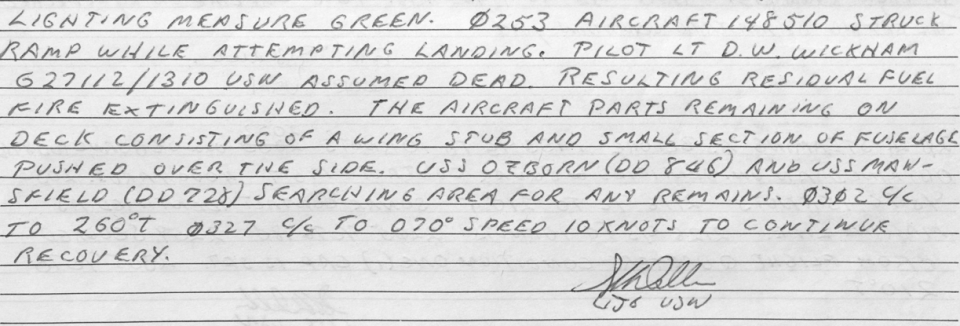 LIGHTING MEASURE GREEN. Ø253 AIRCRAFT 148510 STRUCK
RAMP WHILE ATTEMPTING LANDING. PILOT LT D.W. WICKHAM
627112/1310 USN ASSUMED DEAD. RESULTING RESIDUAL FUEL
FIRE EXTINGUISHED. THE AIRCRAFT PARTS REMAINING ON
DECK CONSISTING OF A WING STUB AND SMALL SECTION OF FUSELAGE
PUSHED OVER THE SIDE. USS OZBORN (DD 846) AND USS MAN-
SFIELD (DD 728) SEARCHING AREA FOR ANY REMAINS. Ø3Ø2 C/C
TO 260°T Ø327 C/C TO 070° SPEED 10 KNOTS TO CONTINUE
RECOVERY.
LTJG USN